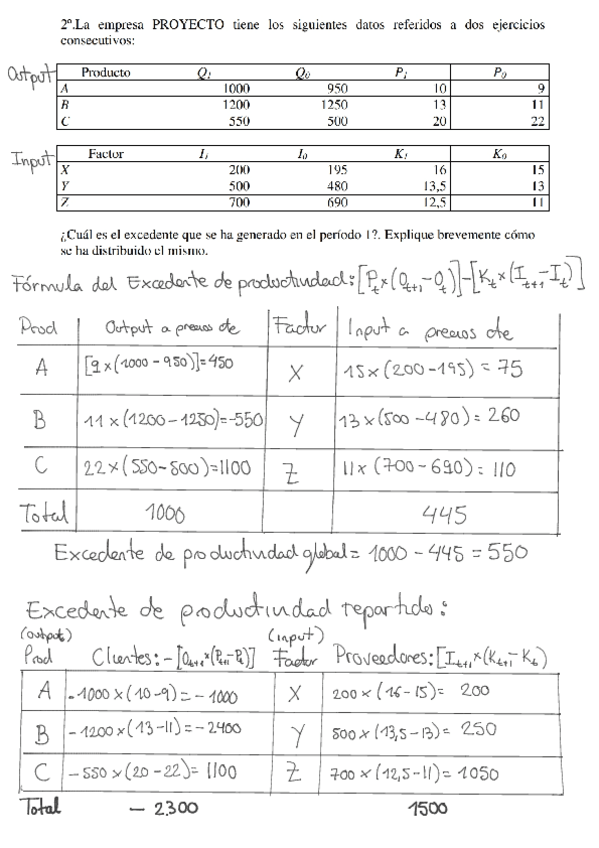 2º.La empresa PROYECTO tiene los siguientes datos referidos a dos ejercicios
consecutivos:
Output
Producto Q1 Q0 P1 P0
A 1000 950 10 9
B 1200 1250 13 11
C 550 500 20 22
Input
Factor I1 I0 K1 K0
X 200 195 16 15
Y 500 480 13,5 13
Z 700 690 12,5 11
¿Cuál es el excedente que se ha generado en el período 1?. Explique brevemente cómo
se ha distribuido el mismo.
Fórmula del Excedente de productividad: [Pt×(Qt+1-Qt)]-[Kt×(It+1-It)]
Prod Output a precios cte Factor Input a precios cte
A [9×(1000-950)]=450 X 15×(200-195)=75
B 11×(1200-1250)=-550 Y 13×(500-480)=260
C 22×(550-500)=1100 Z 11×(700-690)=110
Total 1000 445
Excedente de productividad global= 1000-445=550
Excedente de productividad repartido:
(output) (input)
Prod Clientes:-[Qt+1×(Pt+1-Pt)] Factor Proveedores:[It+1×(Kt+1-Kt)
A -1000×(10-9)=-1000 X 200×(16-15)= 200
B -1200×(13-11)=-2400 Y 500×(13,5-13)= 250
C -550×(20-22)=1100 Z 700×(12,5-11)=1050
Total -2300 1500